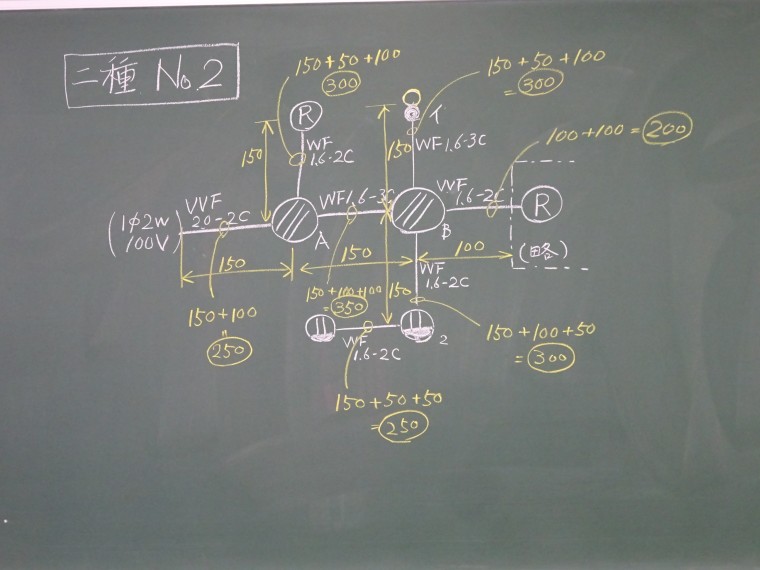 二種 No.2
150+50+100
300
150+50+100
=300
100+100=200
R
イ
150
VVF
1.6-2C
150
VVF1.6-3C
(1φ2W
100V)
VVF
2.0-2C
VVF1.6-3C
VVF
1.6-2C
R
A
B
150
150
100
(略)
VVF
1.6-2C
150+100
=
250
150+100+100
=350
150
150+100+50
=300
2
VVF
1.6-2C
150+50+50
=250